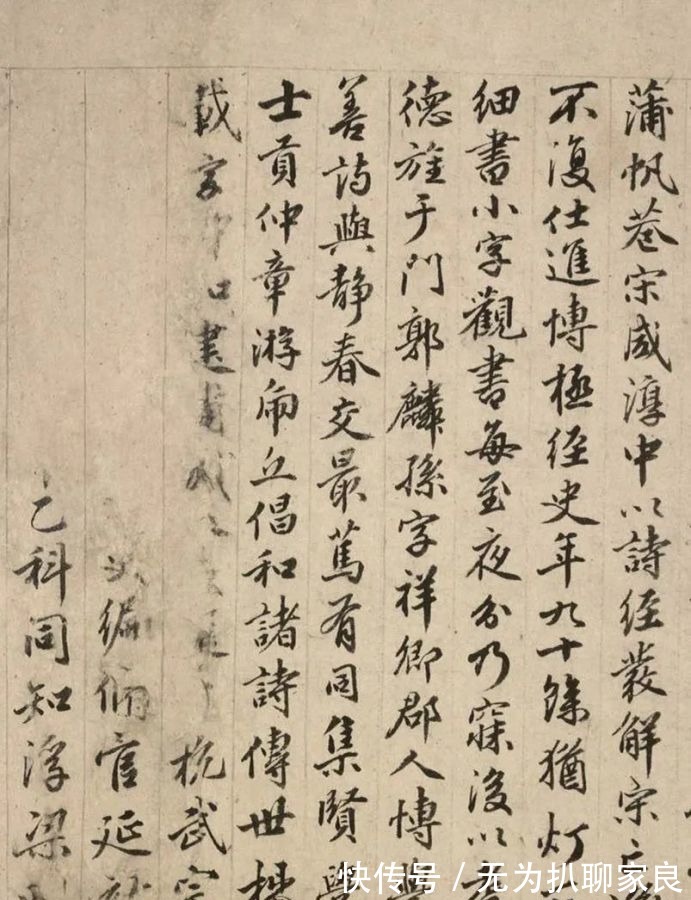 蒲帆巷宋咸淳中以詩経發解宋亡
不復仕進博極経史年九十餘猶灯
細書小字觀書每至夜分乃寐後以
德旌于門郭麟孫字祥卿郡人博學
善詩與静春交最篤有同集賢學
士貢仲章游甫丘倡和諸詩傳世
載字仲 杭武宗
編脩官延祐
乙科同知浮梁
快传号/无为扒聊家良